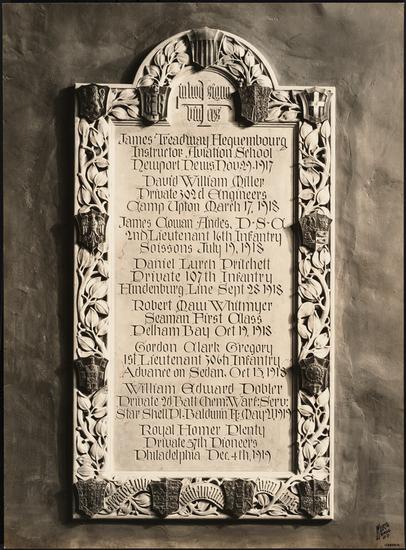 In hoc signo
vinces
James Treadway Hequembourg
Instructor Aviation School
Newport News Nov. 29. 1917
David William Miller
Private 302d Engineers
Camp Upton March 17, 1918
James Cowan Andes, D·S·C
2nd Lieutenant 16th Infantry
Soissons July 19, 1918
Daniel Lurch Pritchett
Private 107th Infantry
Hindenburg Line Sept 28 1918
Robert Maui Whitmyer
Seaman First Class
Pelham Bay Oct 19, 1918
Gordon Clark Gregory
1st Lieutenant 306th Infantry
Advance on Sedan, Oct 15, 1918
William Edward Dobler
Private 2d Batt Chem: Warf: Serv:
Star Shell Pl. Baldwin Pt. May 21, 1919
Royal Homer Plenty
Private 57th Pioneers
Philadelphia Dec. 4th, 1919